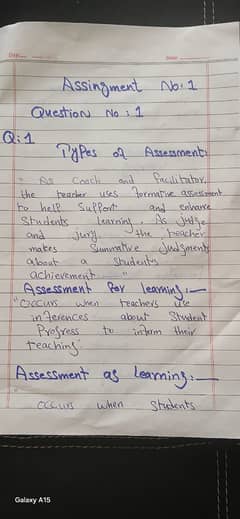 Date
Assingment No: 1
Question No : 1
Q:1
Types of Assessment:
" As Coach and facilitator,
the teacher uses formative assessment
to help Support and enhance
Students learning, As Judge
and jury, the teacher
makes Summative Judgments
about a students
achievement "
Assessment for learning:—
"Occurs when teachers use
inferences about Student
Progress to inform their
teaching"
Assessment as learning:—
"
occurs when students
Galaxy A15